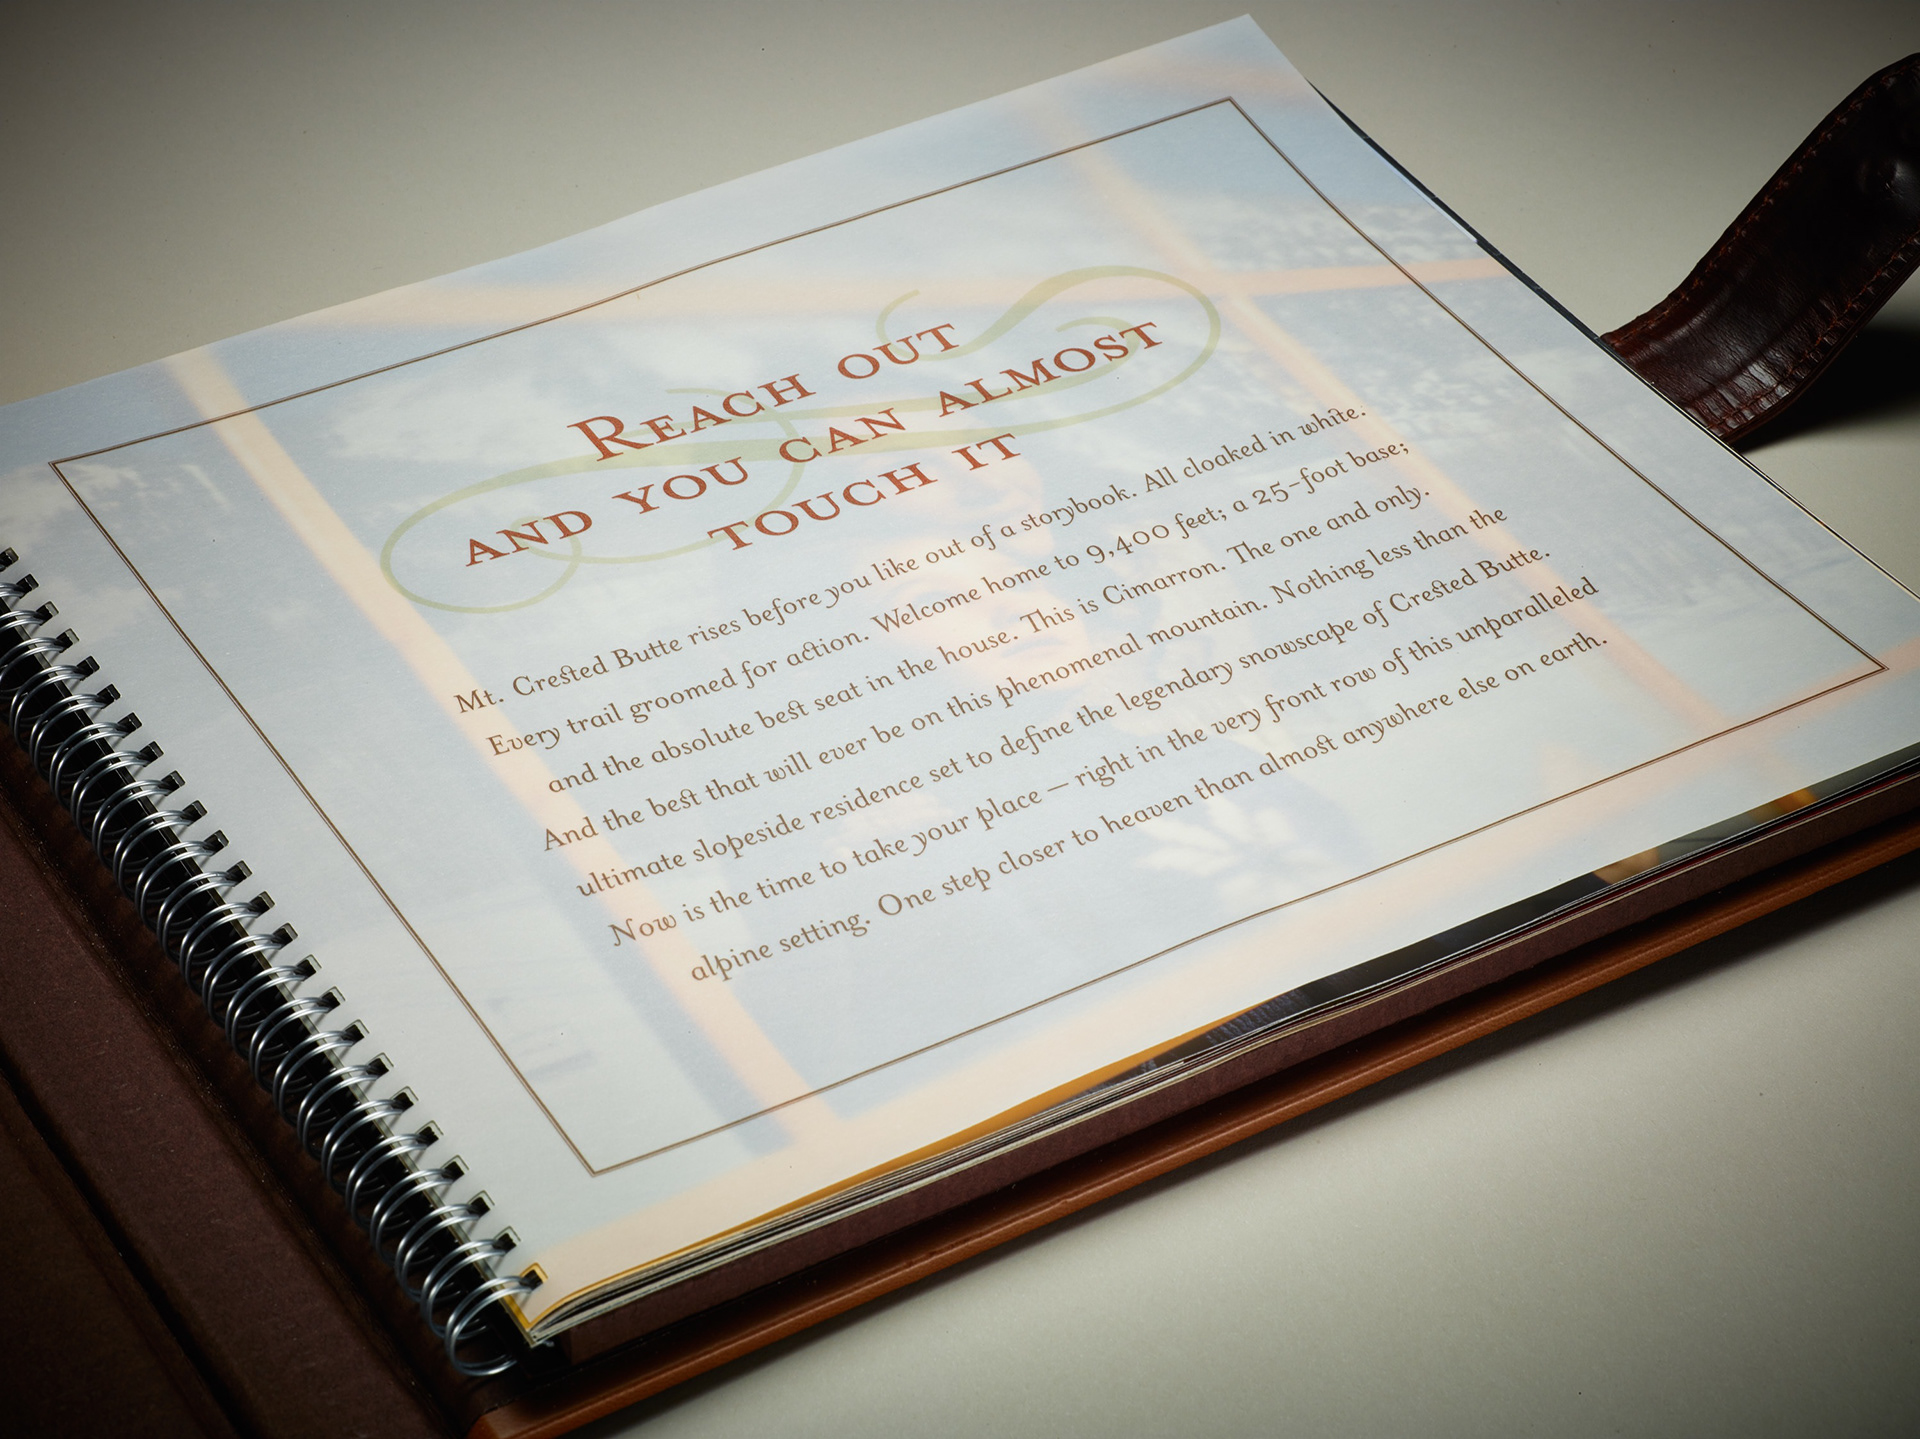 REACH OUT
AND YOU CAN ALMOST
TOUCH IT
Mt. Crested Butte rises before you like out of a storybook. All cloaked in white.
Every trail groomed for action. Welcome home to 9,400 feet; a 25-foot base;
and the absolute best seat in the house. This is Cimarron. The one and only.
And the best that will ever be on this phenomenal mountain. Nothing less than the
ultimate slopeside residence set to define the legendary snowscape of Crested Butte.
Now is the time to take your place — right in the very front row of this unparalleled
alpine setting. One step closer to heaven than almost anywhere else on earth.